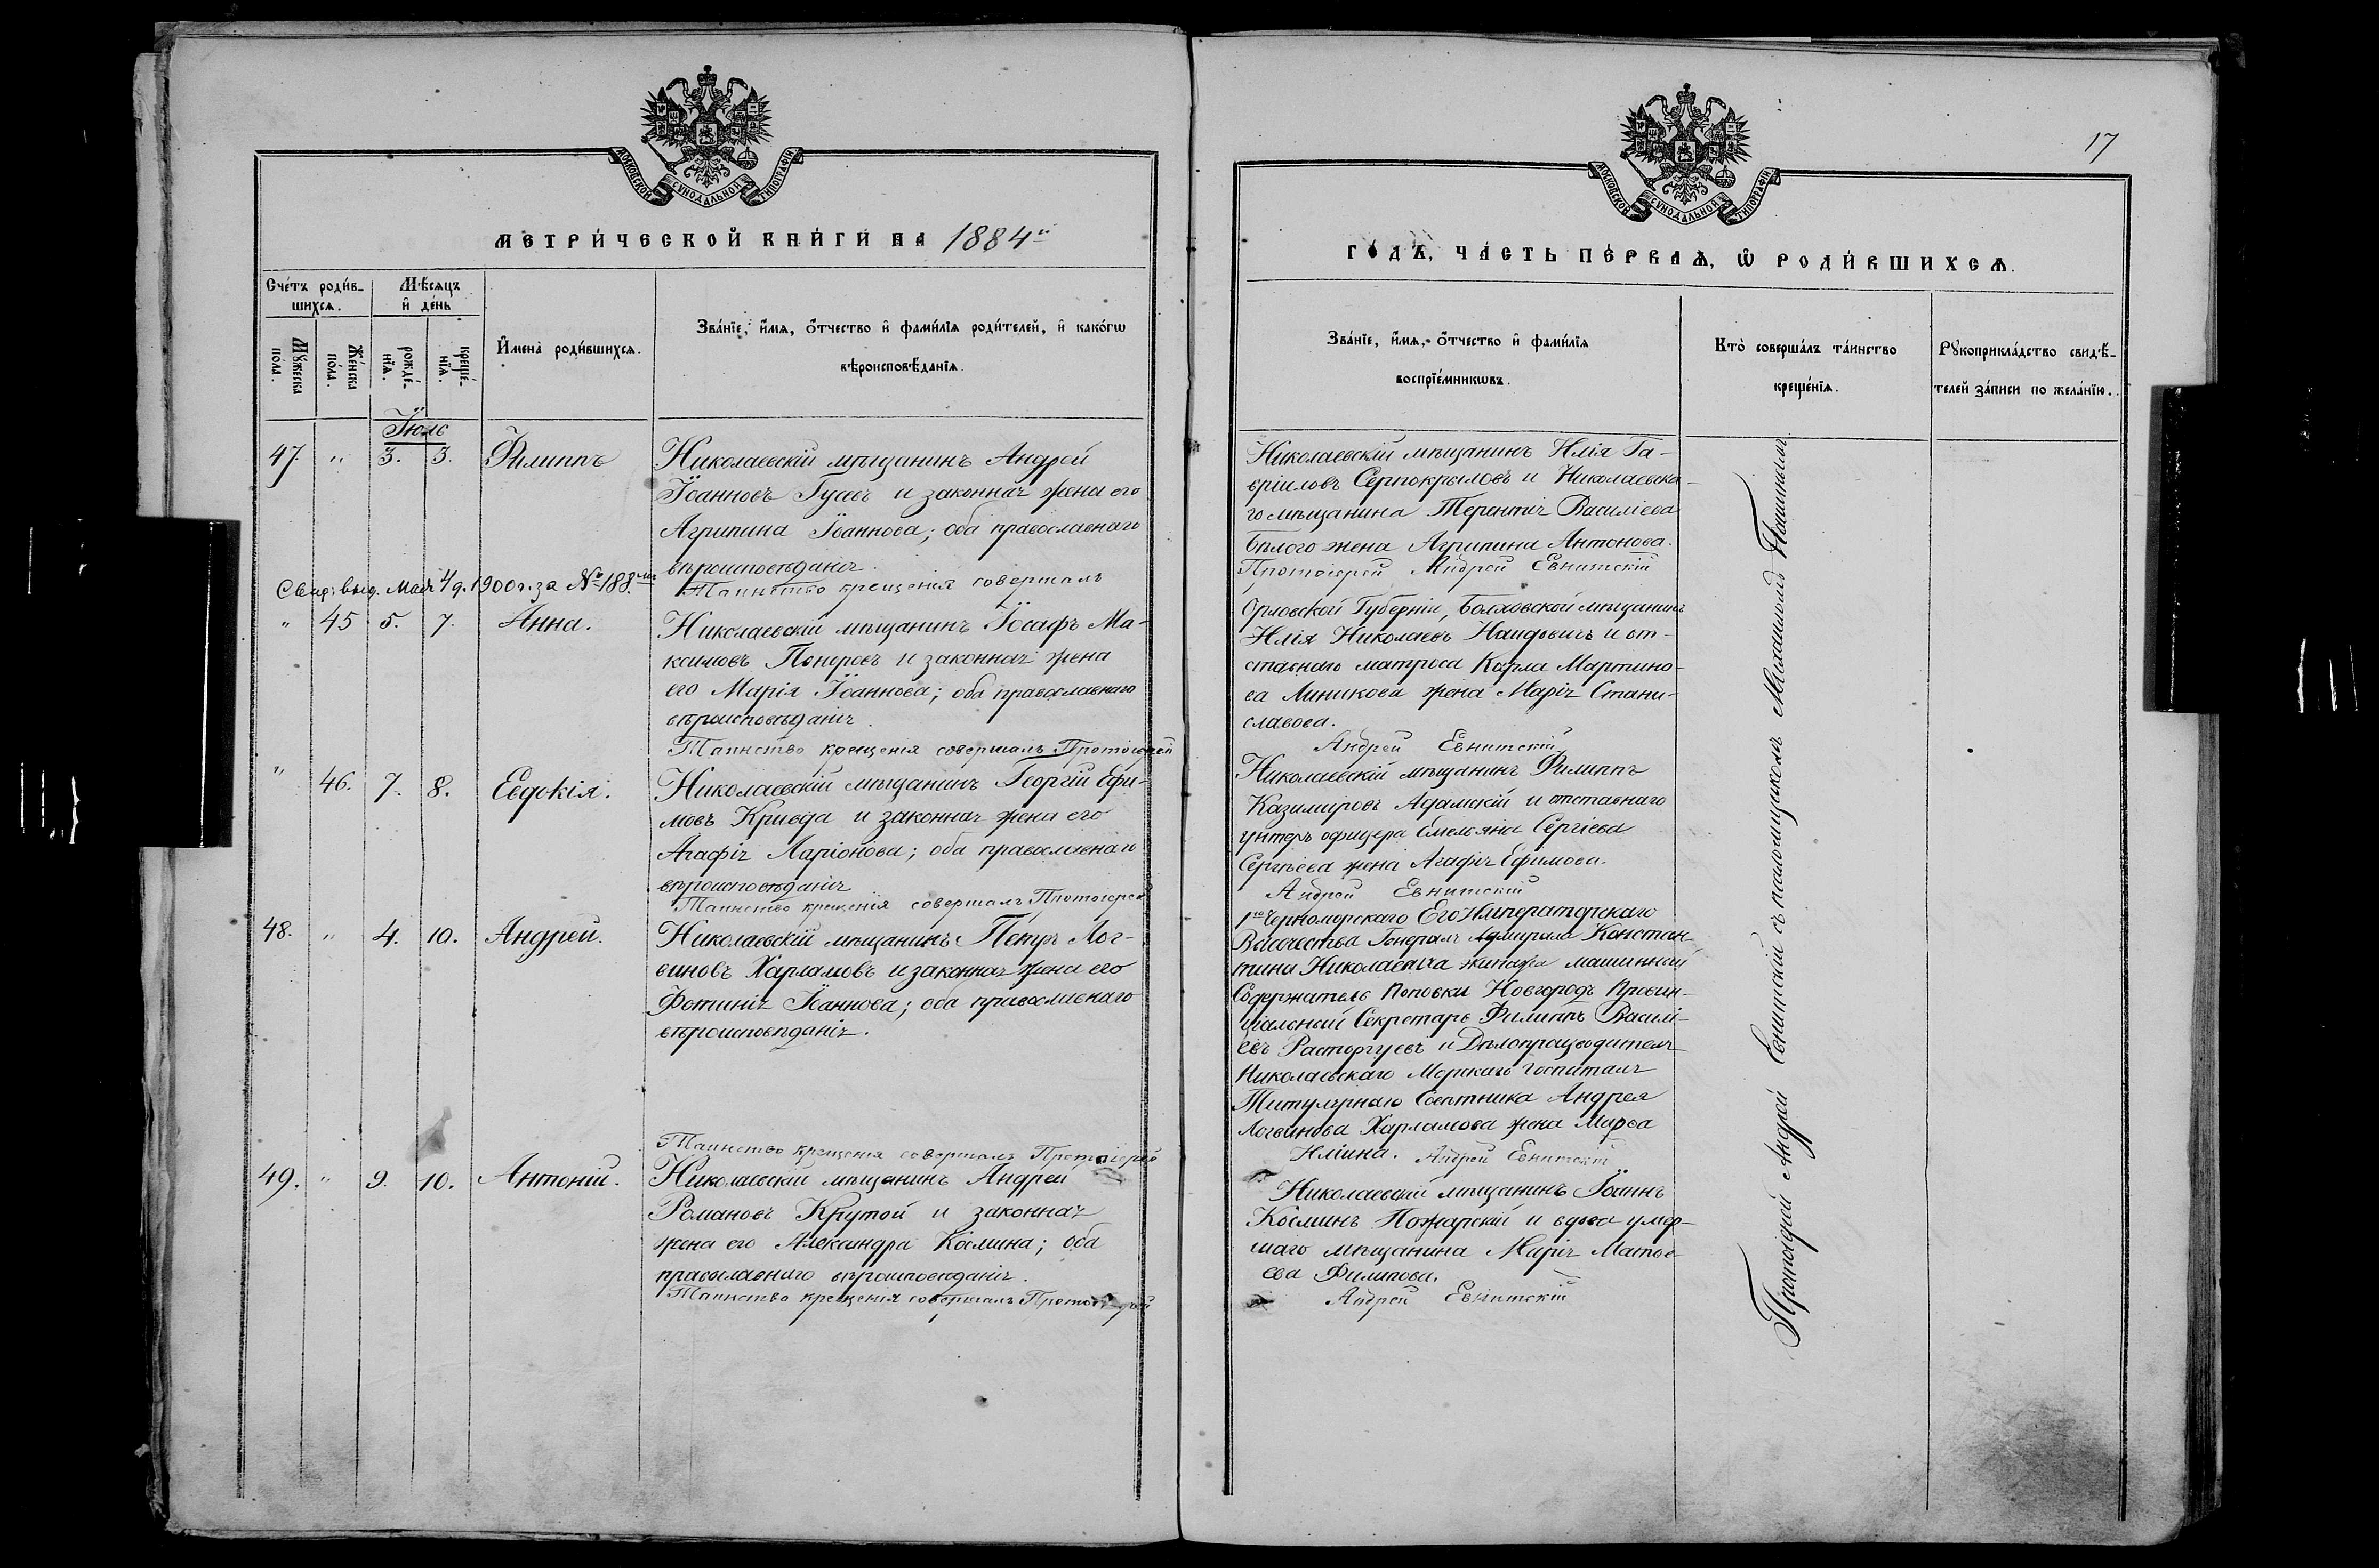 МОСКОВСКОЙ СѴНОДАЛЬНОЙ ТИПОГРАФІИ
МЕТРИ́ЧЕСКОЙ КНИ́ГИ НА 1884й
Сче́тъ роди́в-
шихсѧ.
Мѣ́сѧцъ
и҆ де́нь
Мꙋ́жеска
по́ла.
Же́нска
по́ла.
рожде́-
нїѧ.
креще́-
нїѧ.
И҆мена̀ роди́вшихсѧ.
Зва́нїе, и҆́мѧ, ѻ҆́тчество и҆ фами́лїѧ роди́телей, и҆ како́гѡ
вѣроисповѣ́данїѧ.
Іюль
47. " 3. 3. Филиппъ
Николаевскій мѣщанинъ Андрей
Іоанновъ Гусевъ и законная жена его
Агрипина Іоаннова; оба православнаго
вѣроисповѣданія.
Таинство крещенія совершалъ
Свид: выд. Мая 4 д. 1900 г. за № 188.
" 45 5. 7. Анна.
Николаевскій мѣщанинъ Іосафъ Ма-
ксимовъ и законная жена
его Марія Іоаннова; оба православнаго
вѣроисповѣданія.
Таинство крещенія совершалъ Протоіерей
" 46. 7. 8. Евдокія.
Николаевскій мѣщанинъ Георгій Ефи-
мовъ Кривда и законная жена его
Агафія Ларіонова; оба православнаго
вѣроисповѣданія
Таинство крещенія совершалъ Протоіерей
48. " 4. 10. Андрей.
Николаевскій мѣщанинъ Петръ Лог-
виновъ Харламовъ и законная жена его
Фотинія Іоаннова; оба православнаго
вѣроисповѣданія.
Таинство крещенія совершалъ Протоіерей
49. " 9. 10. Антоній.
Николаевскій мѣщанинъ Андрей
Романовъ Крутой и законная
жена его Александра Космина; оба
православнаго вѣроисповѣданія.
Таинство крещенія совершалъ Протоіерей
17
МОСКОВСКОЙ СѴНОДАЛЬНОЙ ТИПОГРАФІИ
ГО́ДЪ, ЧА́СТЬ ПЕ́РВАѦ, Ѡ҆ РОДИ́ВШИХСѦ.
Зва́нїе, и҆́мѧ, ѻ҆́тчество и҆ фами́лїѧ
воспрїе́мникѡвъ.
Кто̀ соверша́лъ та́инство
креще́нїѧ.
Рꙋкоприкла́дство свидѣ́-
телей за́писи по жела́нїю.
Николаевскій мѣщанинъ Илія Га-
вріиловъ Серпокрыловъ и Николаевска-
го мѣщанина Терентія Василіева
Бѣлого жена Агрипина Антонова.
Протоіерей Андрей Евнитскій
Орловской Губерніи, Болховской мѣщанинъ
Илія Николаевъ и от-
ставнаго матроса Карла Мартино-
ва Линикова жена Марія Стани-
славова.
Андрей Евнитскій
Николаевскій мѣщанинъ Филиппъ
Казимировъ Адамскій и отставнаго
унтеръ офицера Емельяна Сергіева
Сергіева жена Агафія Ефимова.
Андрей Евнитскій
1го Черноморскаго Его Императорскаго
Высочества Генералъ Адмирала Констан-
тина Николаевича экипажа машинный
Содержатель Поповки Новгородъ Провин-
ціальный Секретарь Филиппъ Василі-
евъ Расторгуевъ и Дѣлопроизводителя
Николаевскаго Морскаго госпиталя
Титулярнаго Совѣтника Андрея
Логвинова Харламова жена Марѳа
Иліина. Андрей Евнитскій
Николаевскій мѣщанинъ Іоаннъ
Косминъ Пожарскій и вдова умер-
шаго мѣщанина Марія Матѳе-
ева Филипова.
Андрей Евнитскій
Протоіерей Андрей Евнитскій съ псаломщикомъ Михаиломъ